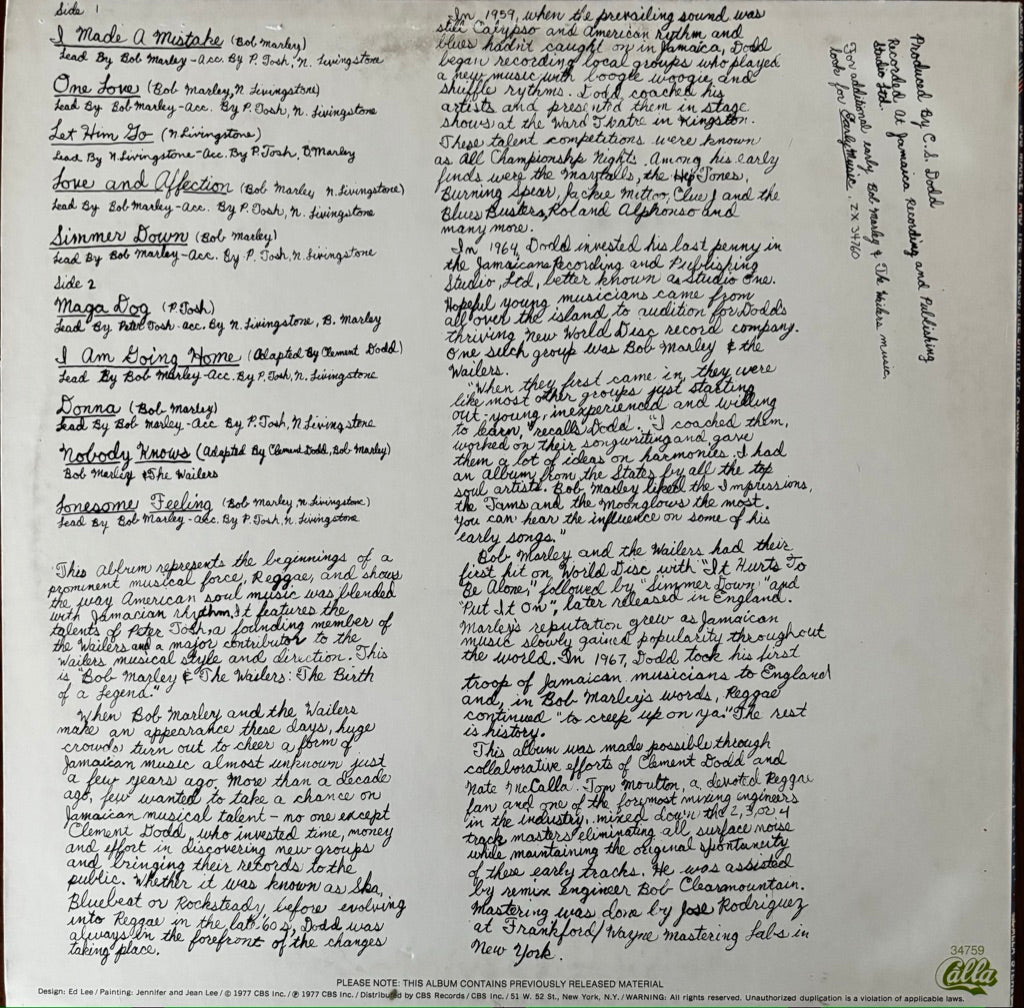 Side 1
I Made A Mistake (Bob Marley)
Lead By Bob Marley-Acc. By P. Tosh, N. Livingstone
One Love (Bob Marley, N. Livingstone)
Lead By Bob Marley-Acc. By P. Tosh, N. Livingstone
Let Him Go (N Livingstone)
Lead By N. Livingstone-Acc. By P. Tosh, B Marley
Love and Affection (Bob Marley N. Livingstone)
Lead By Bob Marley-Acc. By P. Tosh, N. Livingstone
Simmer Down (Bob Marley)
Lead By Bob Marley-Acc. By P. Tosh, N. Livingstone
Side 2
Maga Dog (P. Tosh)
Lead By Peter Tosh-acc. By N. Livingstone, B. Marley
I Am Going Home (Adapted By Clement Dodd)
Lead By Bob Marley-Acc. By P. Tosh, N. Livingstone
Donna (Bob Marley)
Lead By Bob Marley-Acc By P. Tosh, N. Livingstone
Nobody Knows (Adapted By Clement Dodd, Bob Marley)
Bob Marley & The Wailers
Lonesome Feeling (Bob Marley, N Livingstone)
Lead By Bob Marley-Acc. By P. Tosh, N. Livingstone
"This Album represents the beginnings of a
prominent musical force, Reggae, and shows
the way American soul music was blended
with Jamacian rhythm. It features the
talents of Peter Tosh, a founding member of
the Wailers and a major contributor to the
Wailers musical style and direction. This
is "Bob Marley & The Wailers: The Birth
of a Legend."
When Bob Marley and the Wailers
make an appearance these days, huge
crowds turn out to cheer a form of
Jamaican music almost unknown just
a few years ago. More than a decade
ago, few wanted to take a chance on
Jamaican musical talent - no one except
Clement Dodd, who invested time, money
and effort in discovering new groups
and bringing their records to the
public. Whether it was known as Ska,
Bluebeat or Rocksteady before evolving
into Reggae in the late '60s, Dodd was
always in the forefront of the changes
taking place.
In 1959, when the prevailing sound was
still Calypso and American rythm and
blues hadn't caught on in Jamaica, Dodd
began recording local groups who played
a new music with boogie woogie and
shuffle rythms. Dodd coached his
artists and presented them in stage
shows at the Ward Theatre in Kingston.
These talent competitions were known
as All Championship Nights. Among his early
finds were the Maytalls, the Hep Jones,
Burning Spear, Jackie Mittoo, Clue J and the
Blues Busters, Roland Alphonso and
many more.
In 1964, Dodd invested his last penny in
the Jamaicans Recording and Publishing
Studio, Ltd, better known as Studio One.
Hopeful young musicians came from
all over the island to audition for Dodd's
thriving New World Disc record company.
One such group was Bob Marley & the
Wailers.
"When they first came in, they were
like most other groups just starting
out-young, inexperienced and willing
to learn," recalls Dodd. "I coached them,
worked on their songwriting and gave
them a lot of ideas on harmonies. I had
an album from the States by all the top
soul artists. Bob Marley liked the Impressions,
the Tams and the Moonglows the most.
You can hear the influence on some of his
early songs."
Bob Marley and the Wailers had their
first hit on World Disc with "It Hurts To
Be Alone," followed by "Simmer Down" and
"Put It On", later released in England.
Marley's reputation grew as Jamaican
music slowly gained popularity throughout
the world. In 1967, Dodd took his first
troop of Jamaican musicians to England
and, in Bob Marley's words, Reggae
continued "to creep up on ya." The rest
is history.
This album was made possible through
collaborative efforts of Clement Dodd and
Nate McCalla. Tom Moulton, a devoted Reggae
fan and one of the formost mixing engineers
in the industry, mixed down the 2, 3, or 4
track masters eliminating all surface noise
while maintaining the original spontaneity
of these early tracks. He was assisted
by remix engineer Bob Clearmountain.
Mastering was done by Jose Rodriguez
at Frankford/Wayne Mastering Labs in
New York.
Produced By C. S. Dodd
Recorded At Jamaica Recording and Publishing
Studio Ltd.
For additional early Bob Marley & The Wailers music,
look for Early Music, ZX 34760
34759
Calla
PLEASE NOTE: THIS ALBUM CONTAINS PREVIOUSLY RELEASED MATERIAL
Design: Ed Lee/Painting: Jennifer and Jean Lee/© 1977 CBS Inc./℗ 1977 CBS Inc./Distributed by CBS Records/CBS Inc./51 W. 52 St., New York, N.Y./WARNING: All rights reserved. Unauthorized duplication is a violation of applicable laws.